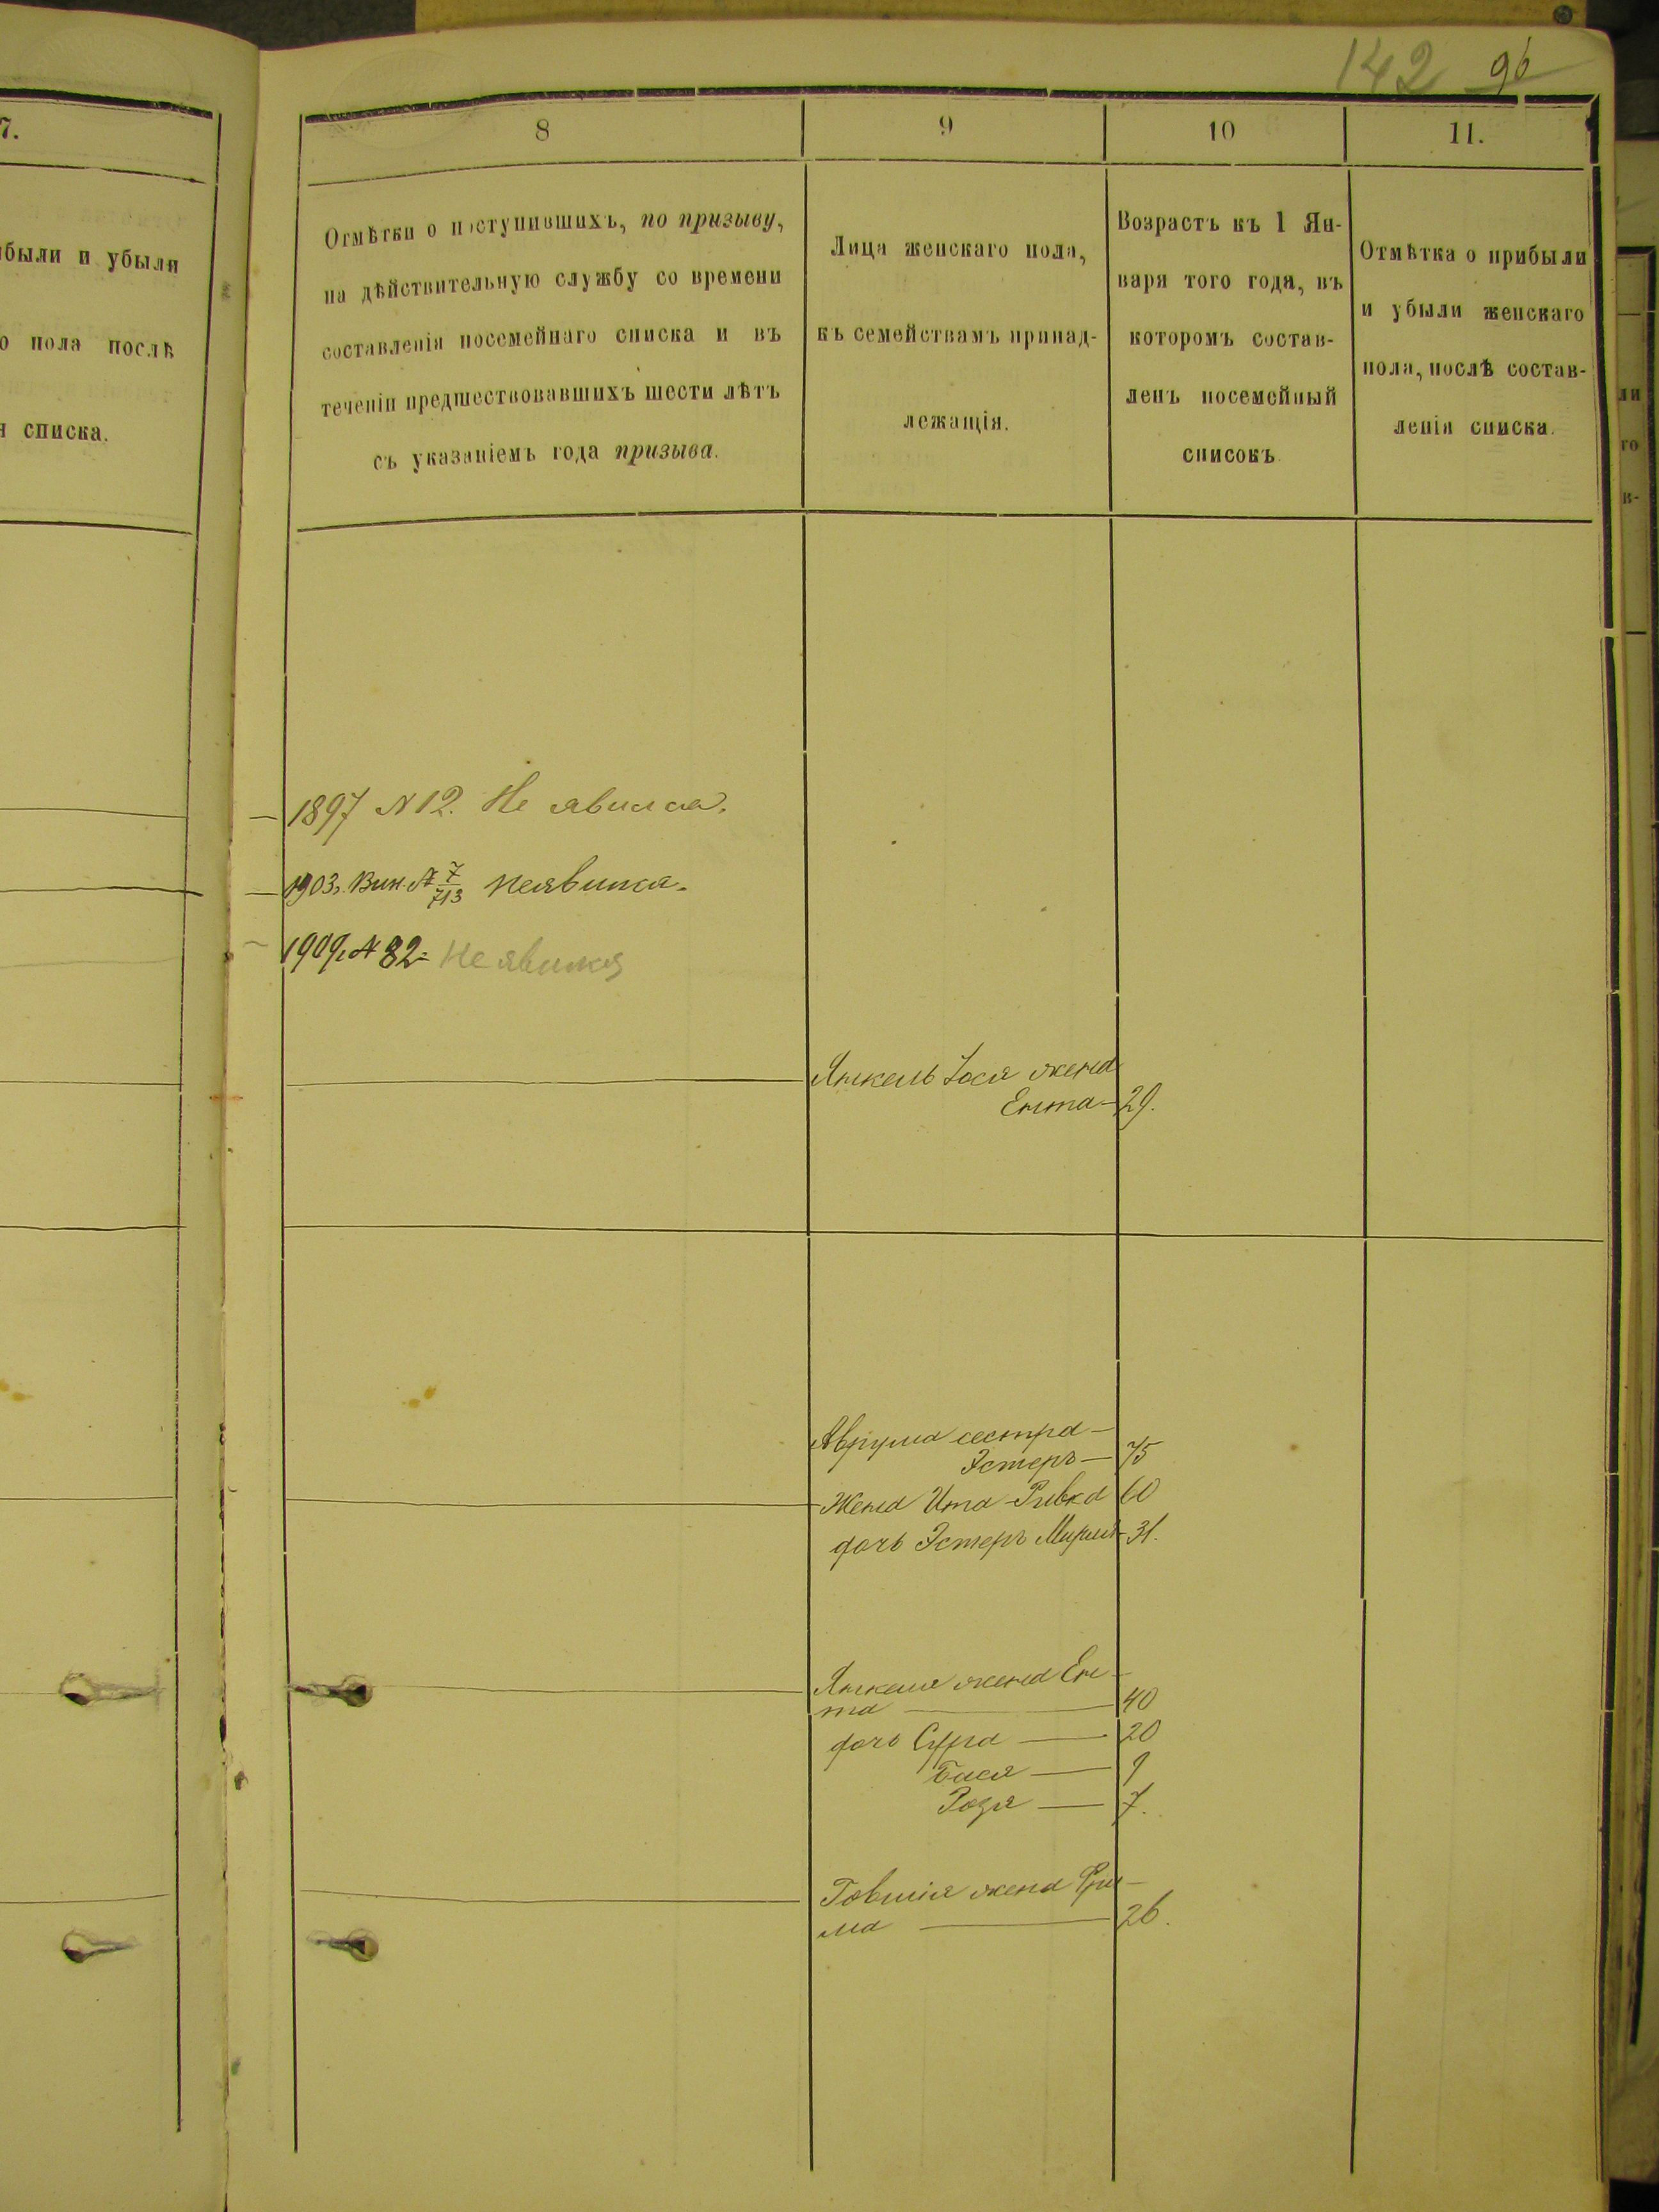 142 96
7.
8
9
10
11.
были и убыли
о пола послѣ
я списка.
Отмѣтки о поступившихъ, по призыву,
на дѣйствительную службу со времени
составленія посемейнаго списка и въ
теченіи предшествовавшихъ шести лѣтъ
съ указаніемъ года призыва.
Лица женскаго пола,
къ семействамъ принад-
лежащія.
Возрастъ къ 1 Ян-
варя того года, въ
которомъ состав-
ленъ посемейный
списокъ
Отмѣтка о прибыли
и убыли женскаго
пола, послѣ состав-
ленія списка.
ли
го
в-
1897 N 12. Не явился.
1903. Вин. № 7/713 неявился.
1909. № 82 - Неявился
Янкель Іося жена
Ента - 29.
Аврума сестра -
Эстеръ - 75
Жена Ита-Ривка 60
дочь Эстеръ Мирия - 31.
Янкеля жена Ен-
та - 40
дочь Сура - 20
Бася - 9
Розя - 7.
Товшія жена Фри-
ма - 26.